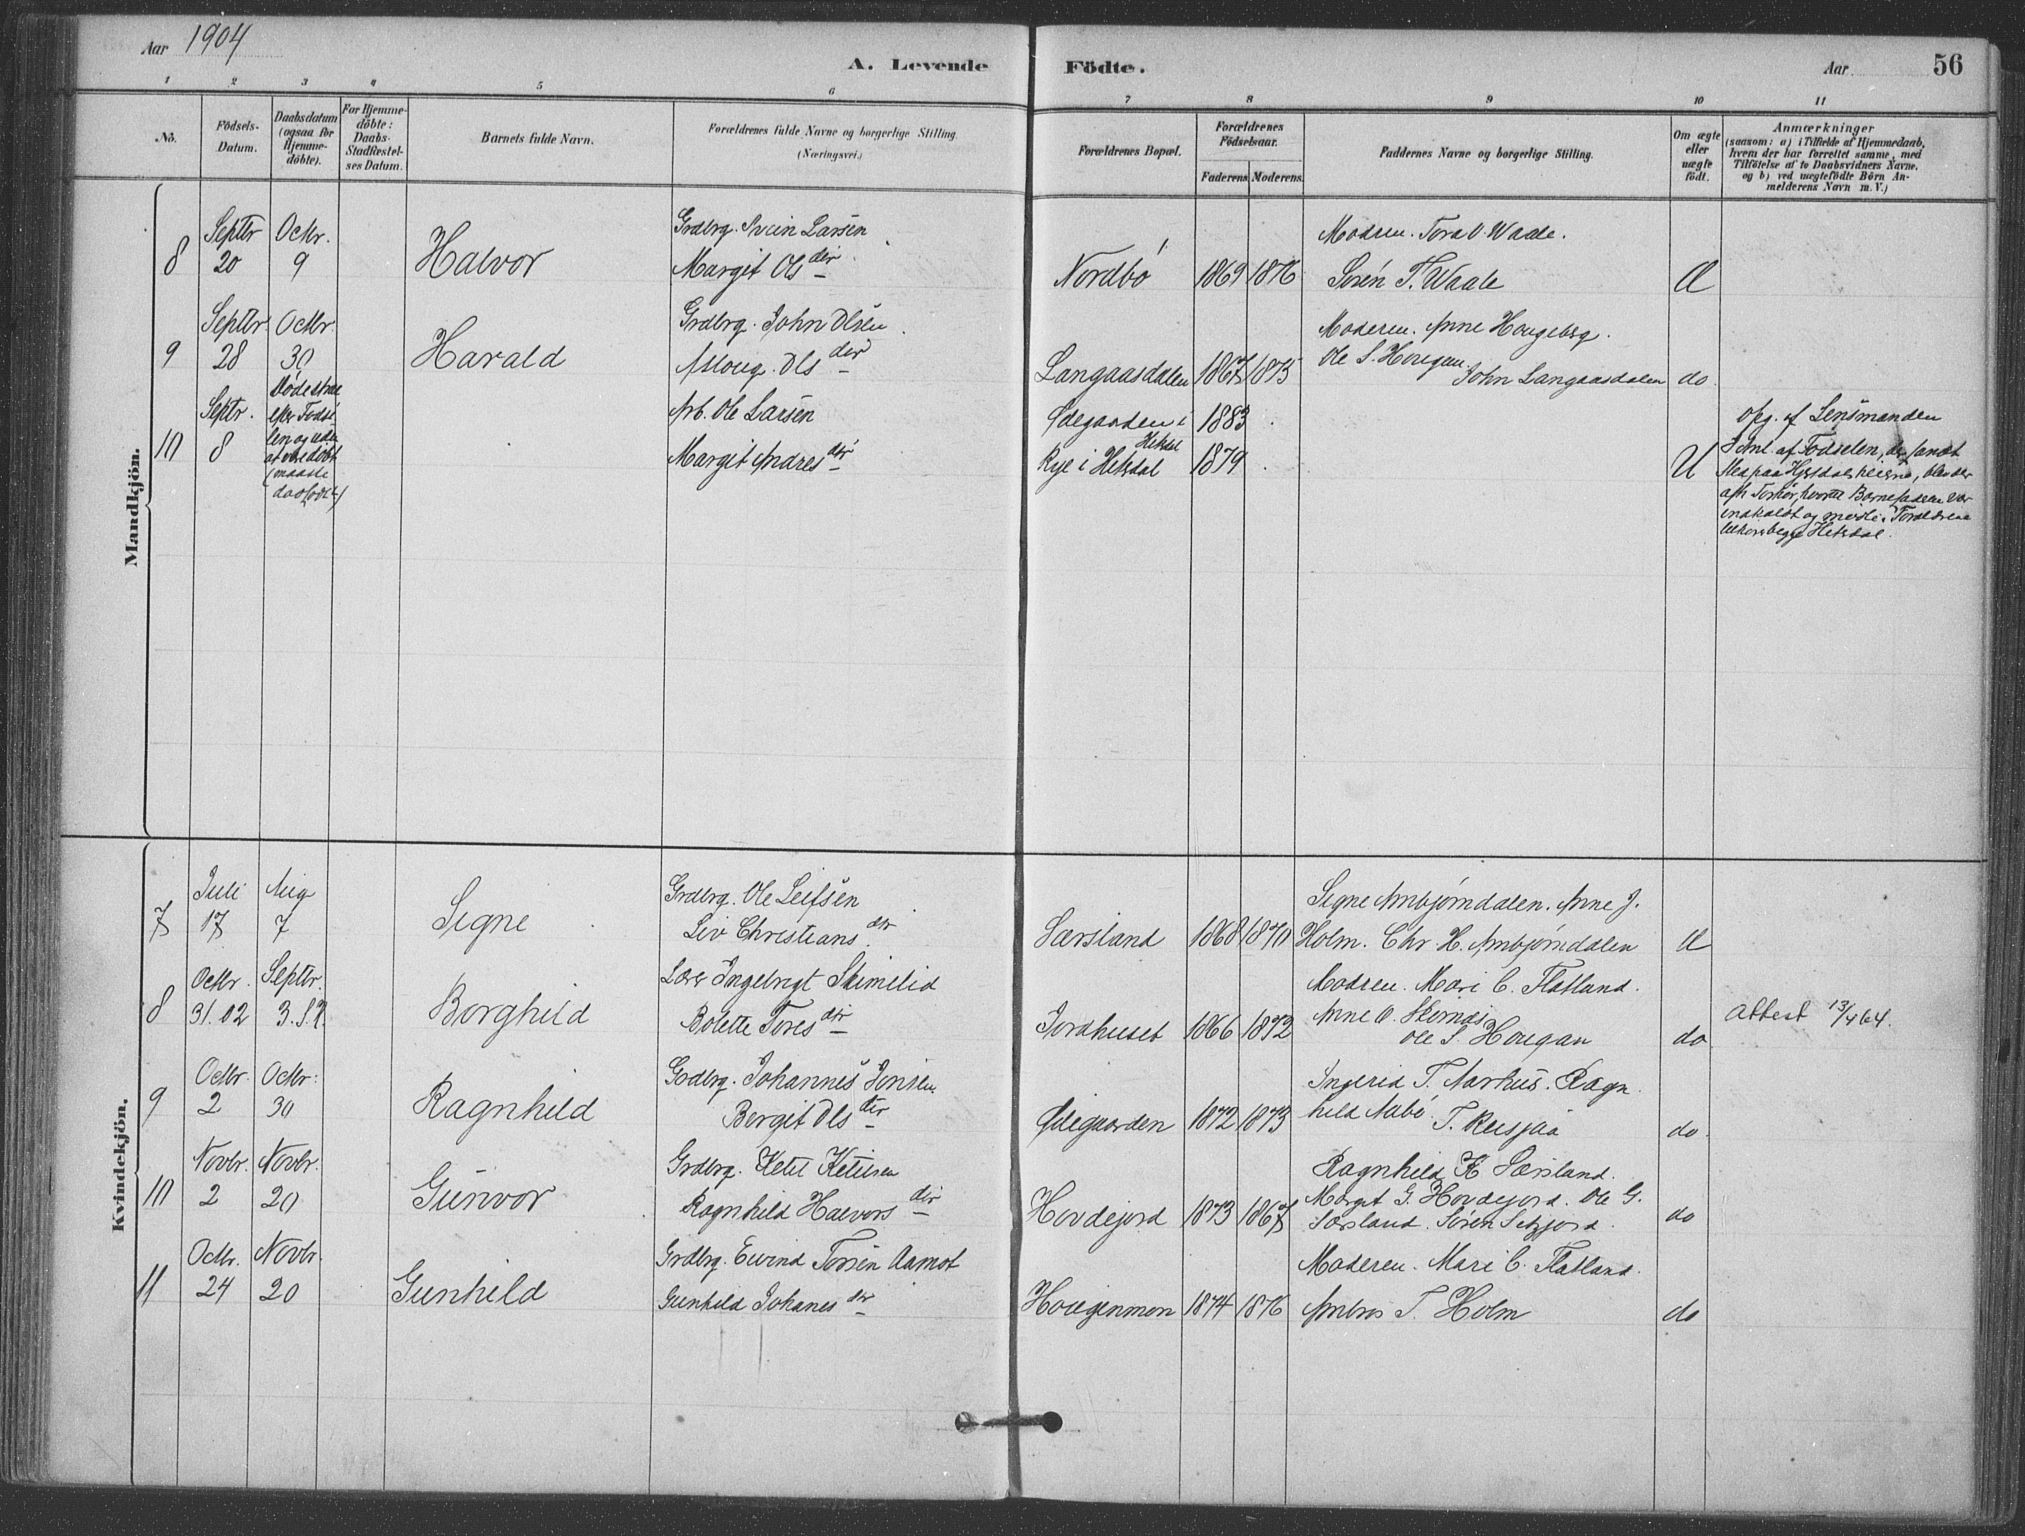 Aar 1904
A. Levende Födte.
Aar
56
1 2 3 4 5 6 7 8 9 10 11
No.
Födsels-Datum.
Daabsdatum (ogsaa for Hjemme-döbte).
For Hjemme-döbte: Daabs-Stadfæstel-ses Datum.
Barnets fulde Navn.
Forældrenes fulde Navne og borgerlige Stilling. (Næringsvei.)
Forældrenes Bopæl.
Forældrenes Födselsaar.
Faderens. Moderens.
Faddernes Navne og borgerlige Stilling.
Om ægte eller uægte födt.
Anmærkninger
(saasom: a) i Tilfælde af Hjemmedaab,
hvem der har forrettet samme, med
Tilföielse af to Daabsvidners Navne,
og b) ved uægtefödte Börn An-
melderens Navn m. V.)
Mandkjön.
8 Septbr 20 Octbr. 9 Halvor
Grdbrg. Svein Larsen
Margit Olsdtr
Nordbø 1869 1876
Modren. Tora O. Waale.
Søren T. Waale
Æ
9 Septbr. 28 Octbr. 30 Harald
Grdbrg. John Olsen
Aslaug Olsdtr
Langaasdalen 1867 1875
Moderen. Anne Haugeberg.
Ole S. Haugan
John Langaasdalen
do.
10 Septr. 8
Døde strax
efter Fødse
len og uden
at være døbt
(maaske
dødfødt)
Arb. Ole Larsen
Margit Andresdtr
Ødegaarden i Hitsdal 1883
Rye i Hitsdal 1879
U
Opg. af Lensmanden
Anl af Fødselen, der fandt
Sted paa Hjertdalsheierne, blev der
afh Forhør, hvortil Barnefaderen var
indkaldt og mødte. Forældrene
tilhøre begge Hitsdal.
Kvindekjön.
7 Juli 17 Aug 7 Signe
Grdbrg. Ole Leifsen
Liv Christiansdtr.
Særsland 1868 1870
Signe Ambjørndalen. Anne J.
Holm. Chr H. Ambjørndalen
Æ
8 Octbr. 31.02 Septbr. 3. Borghild
Lærer Ingebrigt Skimelid
Bolette Toresdtr
Jordhuset 1866 1872
Modren. Mari C. Flatland.
Anne O. Skirndis
Ole S. Haugan
do
Attest 13/4 64.
9 Octbr. 2 Octbr. 30 Ragnhild
Grdbrg. Johannes Jonsen
Bergit Olsdtr
Ødegaarden 1872 1873
Ingerid T. Aarhus. Ragn
hild Aabø. T. Rusjaa
do.
10 Novbr. 2 Novbr. 20 Gunvor
Grdbrg. Ketil Ketilsen
Ragnhild Halvorsdtr
Hovdejord 1873 1867
Ragnhild K Særsland.
Margit G. Hovdejord. Ole G.
Særsland. Søren Seljord.
do
11 Octbr. 24 Novbr. 20 Gunhild
Grdbrg. Eivind Torsen Aamot
Gunhild Johanesdtr
Haugenmon 1874 1876
Moderen. Mari C. Flatland.
Ambros T. Holm
do